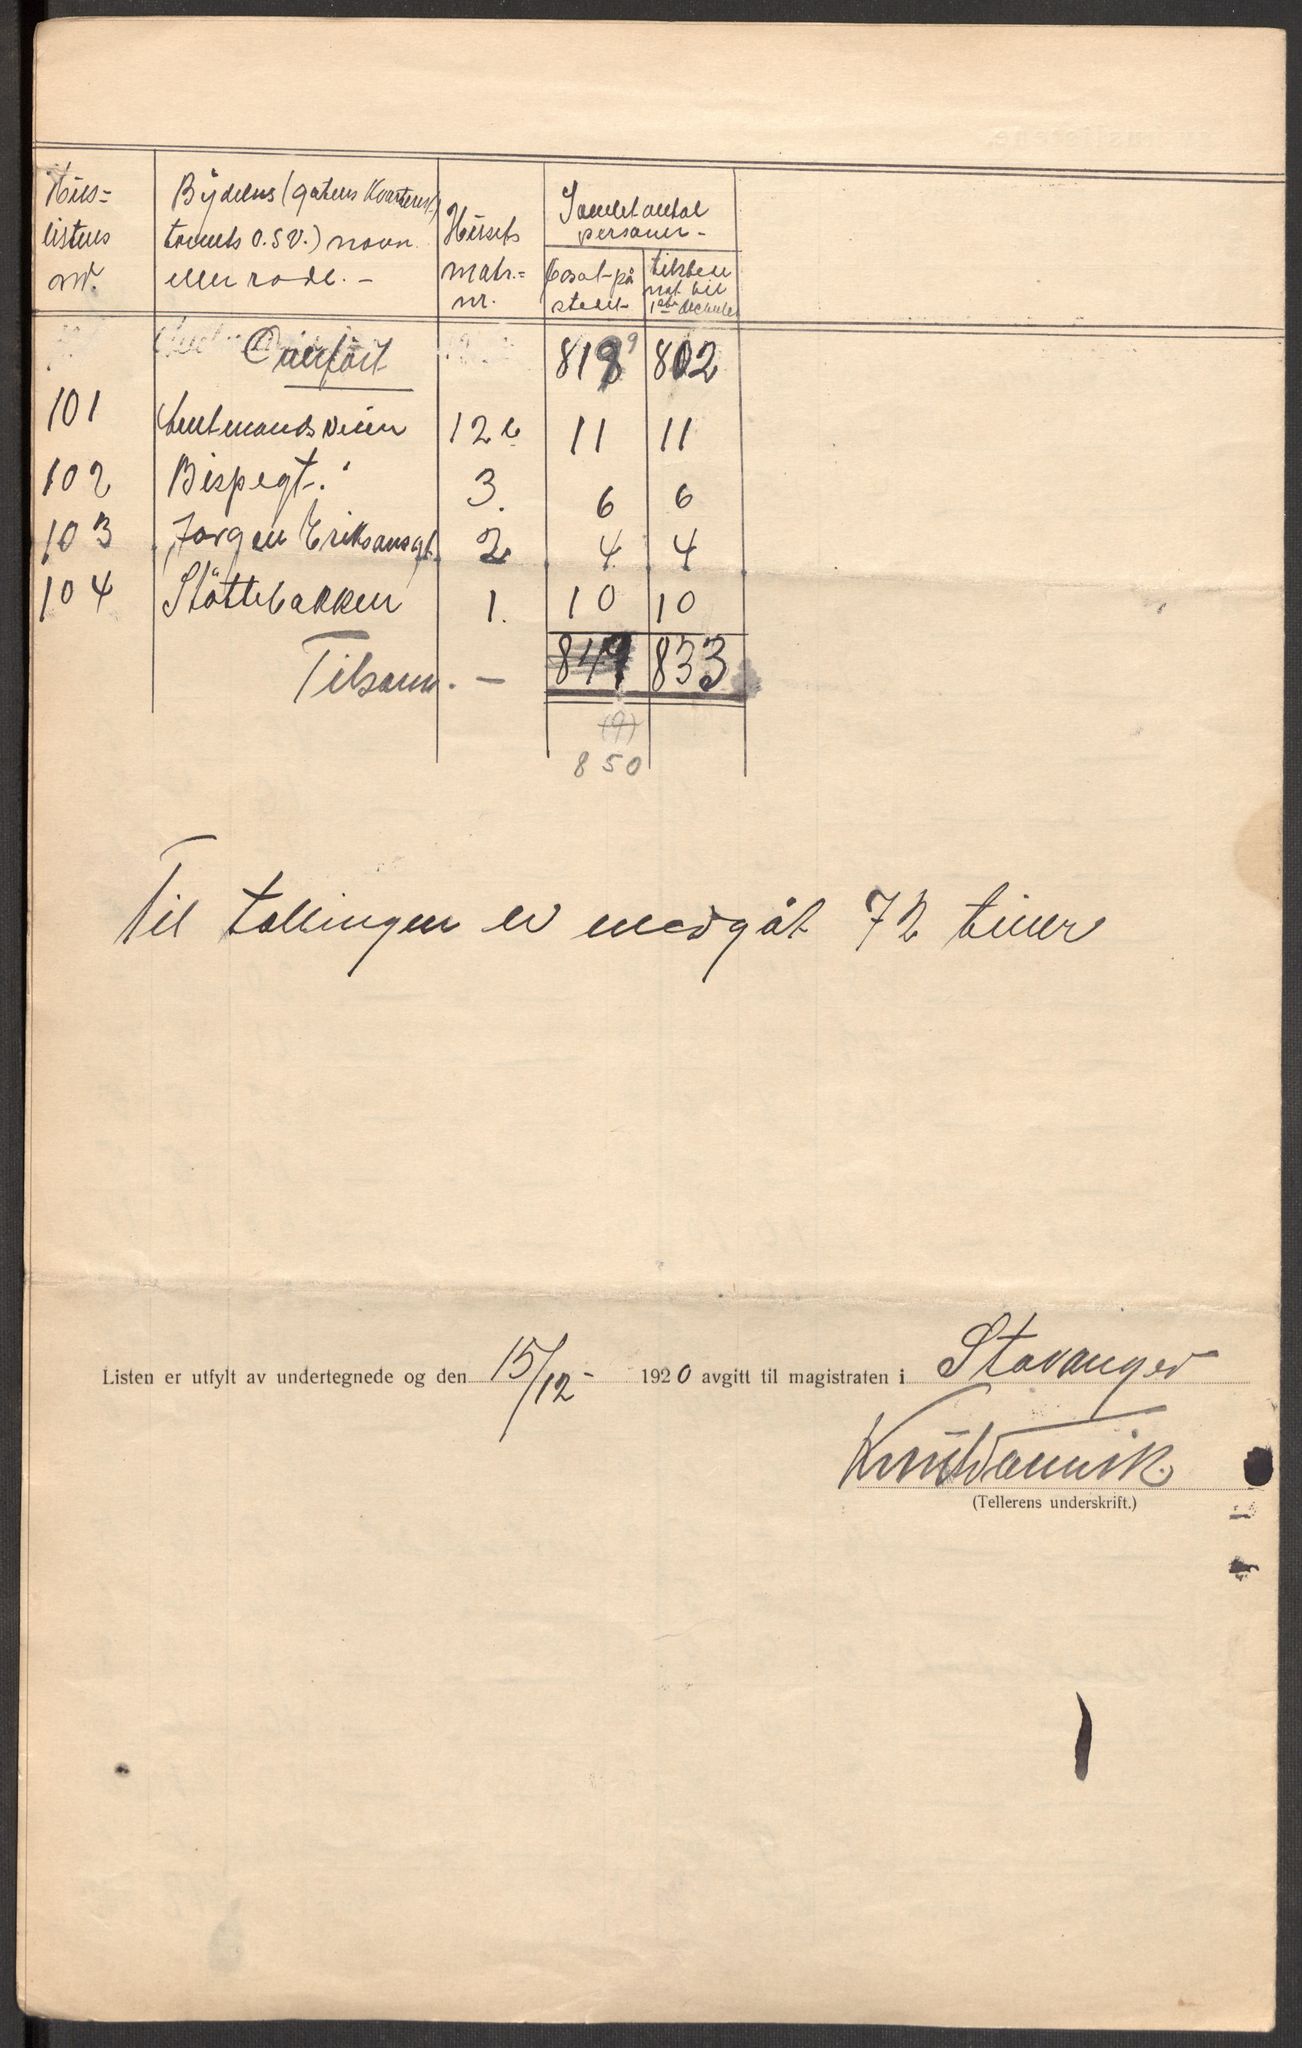 Hus- Bydelens (gatens Kvarterets
listens tomts o.s.v.) navn Husets Samlet antal personer-
nr. eller rode. - matr.- nr. bosat på stedet tilstede nat til 1ste december
Overført 818 9 802
101 Amtmandsveien 12 11 11
102 Bispegt. 3. 6 6
103 Jorgen Eriksonsgt. 2 4 4
104 Støttebakken 1. 10 10
Tilsam. - 849 833
(9)
850
Til tællingen er medgåt 72 timer
Listen er utfylt av undertegnede og den 15/12- 1920 avgitt til magistraten i Stavanger
Knut
(Tellerens underskrift.)